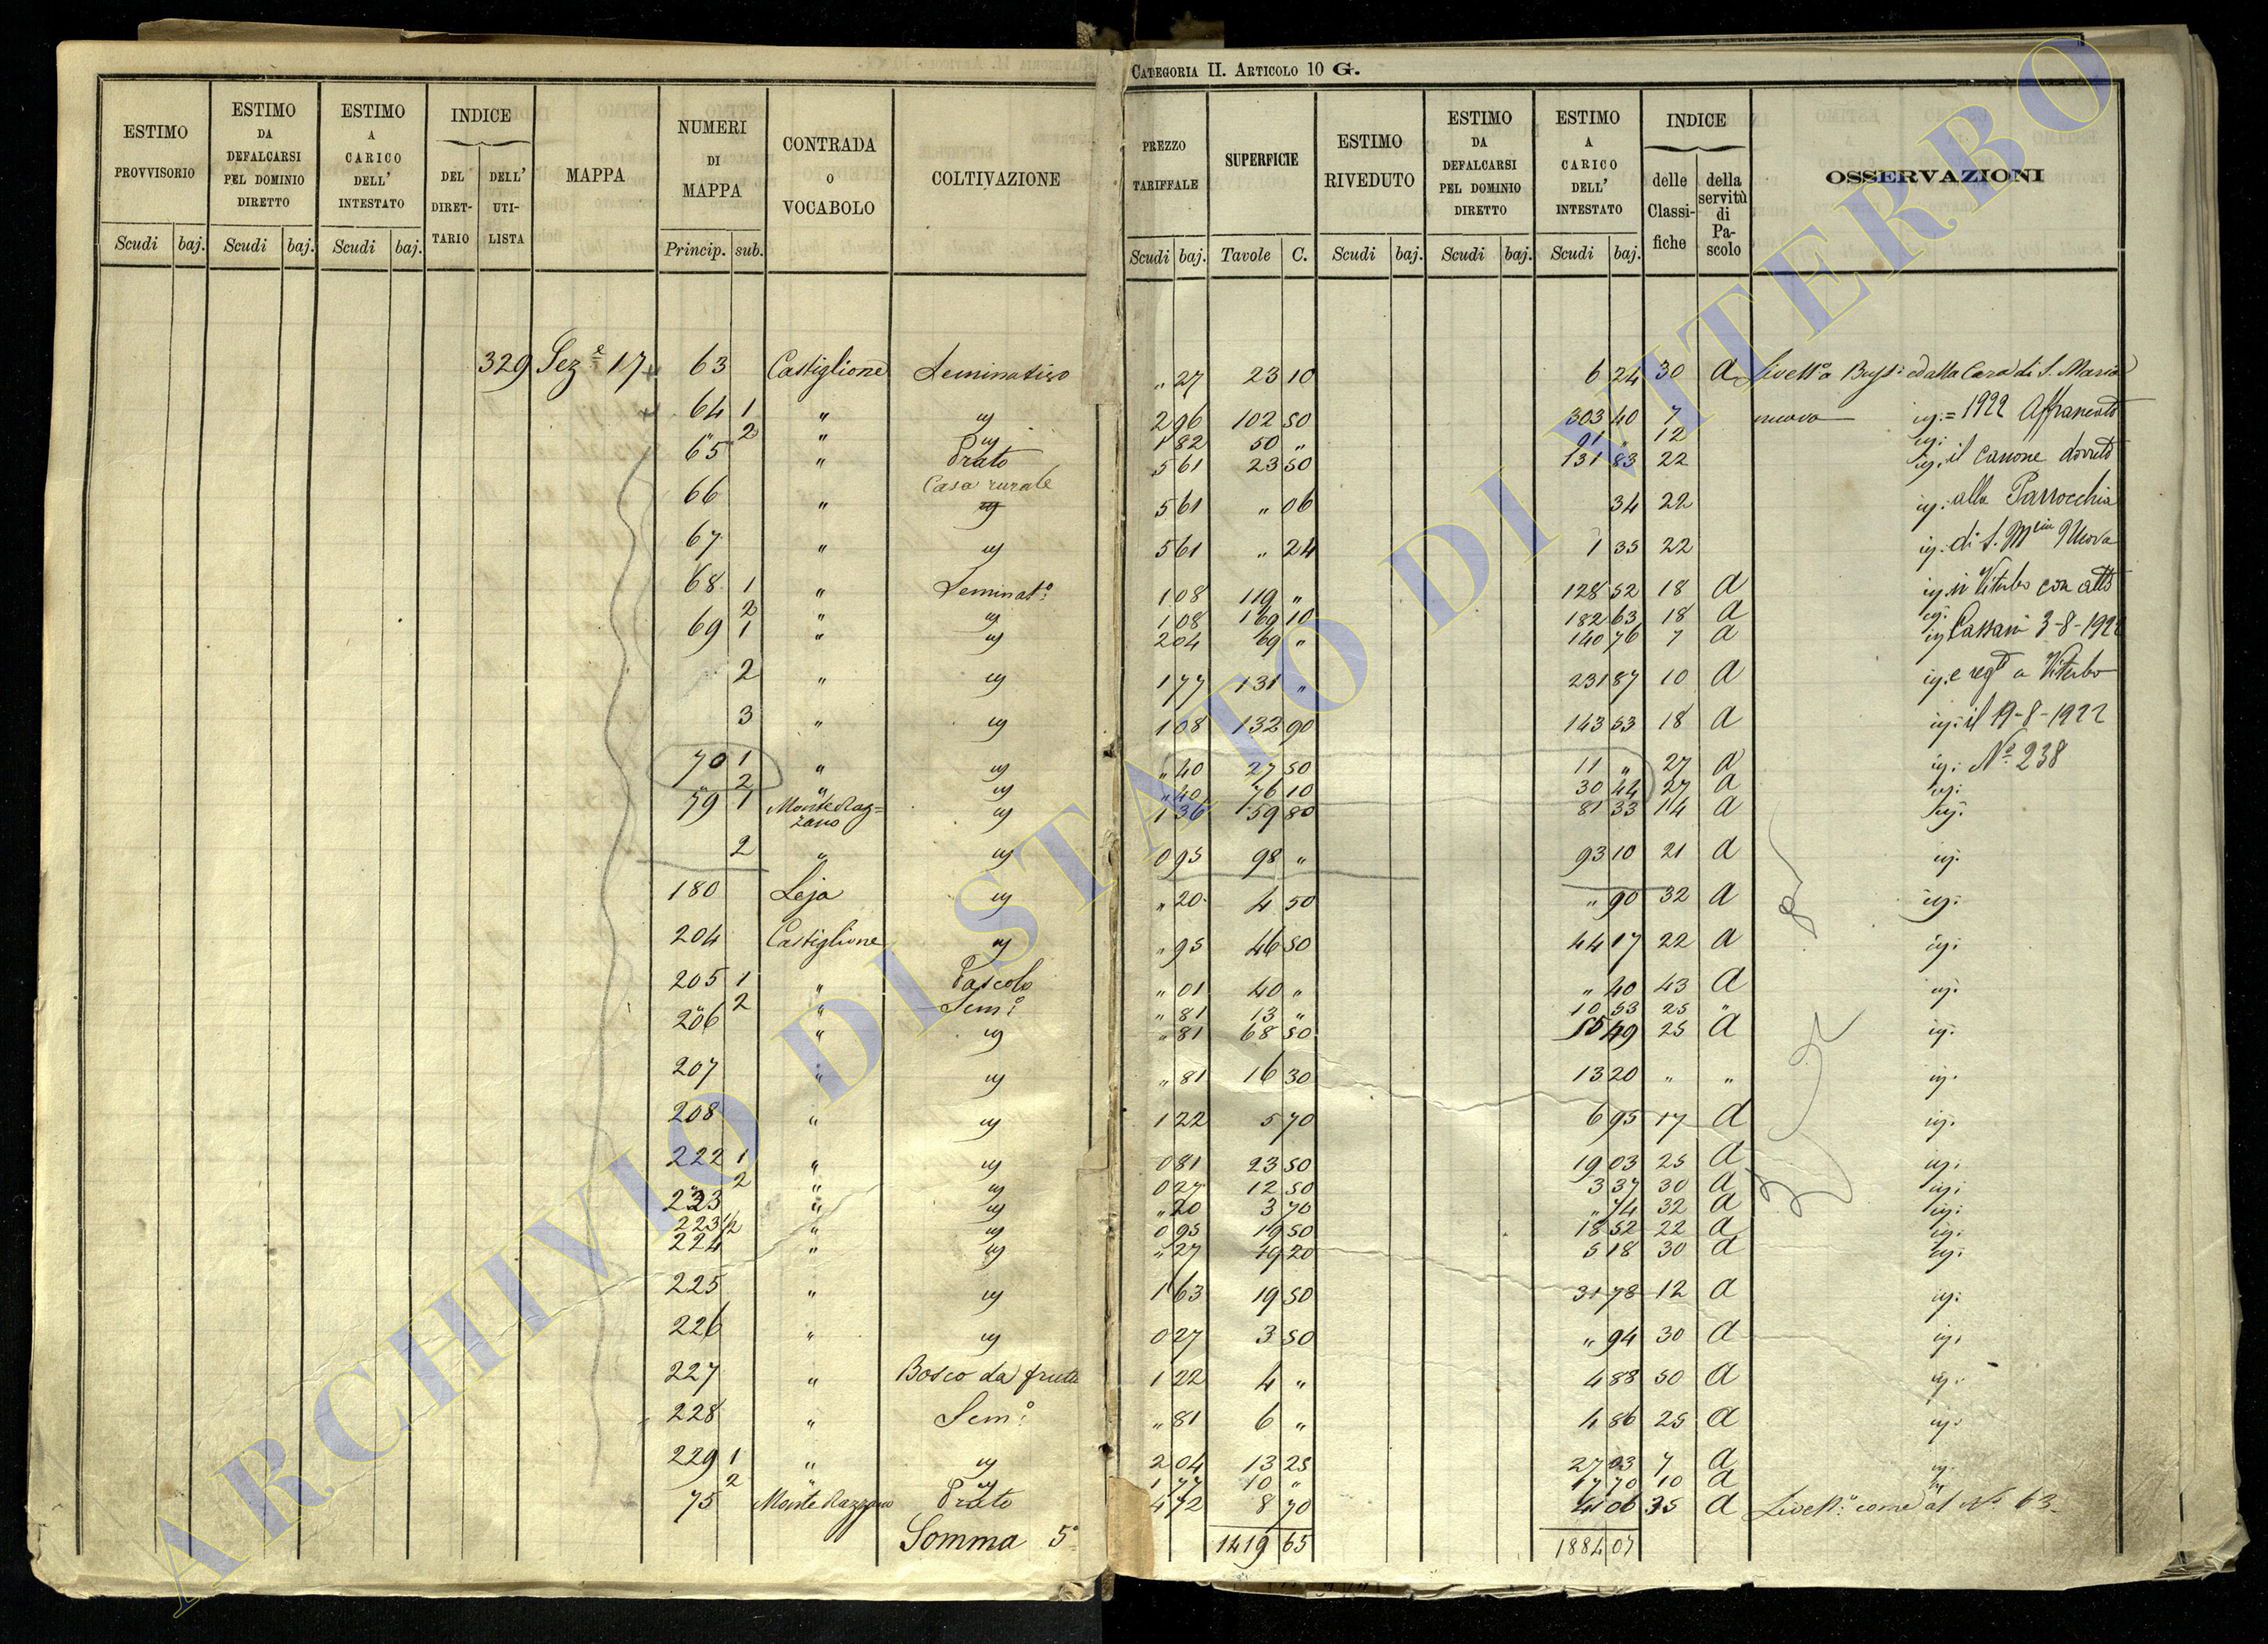 CATEGORIA II. ARTICOLO 10 G.
ESTIMO PROVVISORIO | ESTIMO DA DEFALCARSI PEL DOMINIO DIRETTO | ESTIMO A CARICO DELL' INTESTATO | INDICE | MAPPA | NUMERI DI MAPPA | CONTRADA O VOCABOLO | COLTIVAZIONE | PREZZO TARIFFALE | SUPERFICIE | ESTIMO RIVEDUTO | ESTIMO DA DEFALCARSI PEL DOMINIO DIRETTO | ESTIMO A CARICO DELL' INTESTATO | INDICE | OSSERVAZIONI
DEL DIRETTARIO | DELL' UTILISTA | delle Classifiche | della servitù di Pascolo
Scudi | baj. | Scudi | baj. | Scudi | baj. | Princip. | sub. | Scudi | baj. | Tavole | C. | Scudi | baj. | Scudi | baj. | Scudi | baj.
329 Sez.e 17 63 Castiglione Seminativo " 27 23 10 6 24 30 A Livello a Bussi ed alla Cura di S. Maria
64 1 " id 2 96 102 50 303 40 7 nuova id. = 1922 Affrancato
" 2 " id 1 82 50 " 91 " 12 id.
65 " Prato 5 61 23 50 131 83 22 id. il canone dovuto
66 " Casa rurale 5 61 " 06 34 22 id. alla Parrocchia
67 " id 5 61 " 24 1 35 22 id. di S. Mria Nuova
68 1 " Seminato 1 08 119 " 128 52 18 A id. in Viterbo con atto
2 " id 1 08 169 10 182 63 18 A id.
69 1 " id 2 04 69 " 140 76 7 A id. Cassani 3-8-1922
2 " id 1 77 131 " 231 87 10 A id. e regto a Viterbo
3 " id 1 08 132 90 143 53 18 A id. il 19-8-1922
70 1 " id " 40 27 50 11 " 27 A id. No 238
" 2 " id " 40 76 10 30 44 27 A id.
79 1 Monte Razzano id 1 36 59 80 81 33 14 A id.
2 " id 0 95 98 " 93 10 21 A id.
180 Leja id " 20 4 50 " 90 32 A id.
204 Castiglione id " 95 46 50 44 17 22 A id.
205 1 " Pascolo " 01 40 " " 40 43 A id.
" 2 " Sem.o " 81 13 " 10 53 25 "
206 " id " 81 68 50 55 49 25 A id.
207 " id " 81 16 30 13 20 " " id.
208 " id 1 22 5 70 6 95 17 A id.
222 1 " id 0 81 23 50 19 03 25 A id.
" 2 " id 0 27 12 50 3 37 30 A id.
223 " id " 20 3 70 " 74 32 A id.
223 1/2 " id 0 95 19 50 18 52 22 A id.
224 " id " 27 19 20 5 18 30 A id.
225 " id 1 63 19 50 31 78 12 A id.
226 " id 0 27 3 50 " 94 30 A id.
227 " Bosco da frutto 1 22 4 " 4 88 50 A id.
228 " Sem.o " 81 6 " 4 86 25 A id.
229 1 " id 2 04 13 25 27 03 7 A id.
2 " id 1 77 10 " 17 70 10 A id.
75 Monte Razzano Prato 4 72 8 70 41 06 35 A Livell.o come al No 63
Somma 5a 1419 65 1884 07
ARCHIVIO DI STATO DI VITERBO